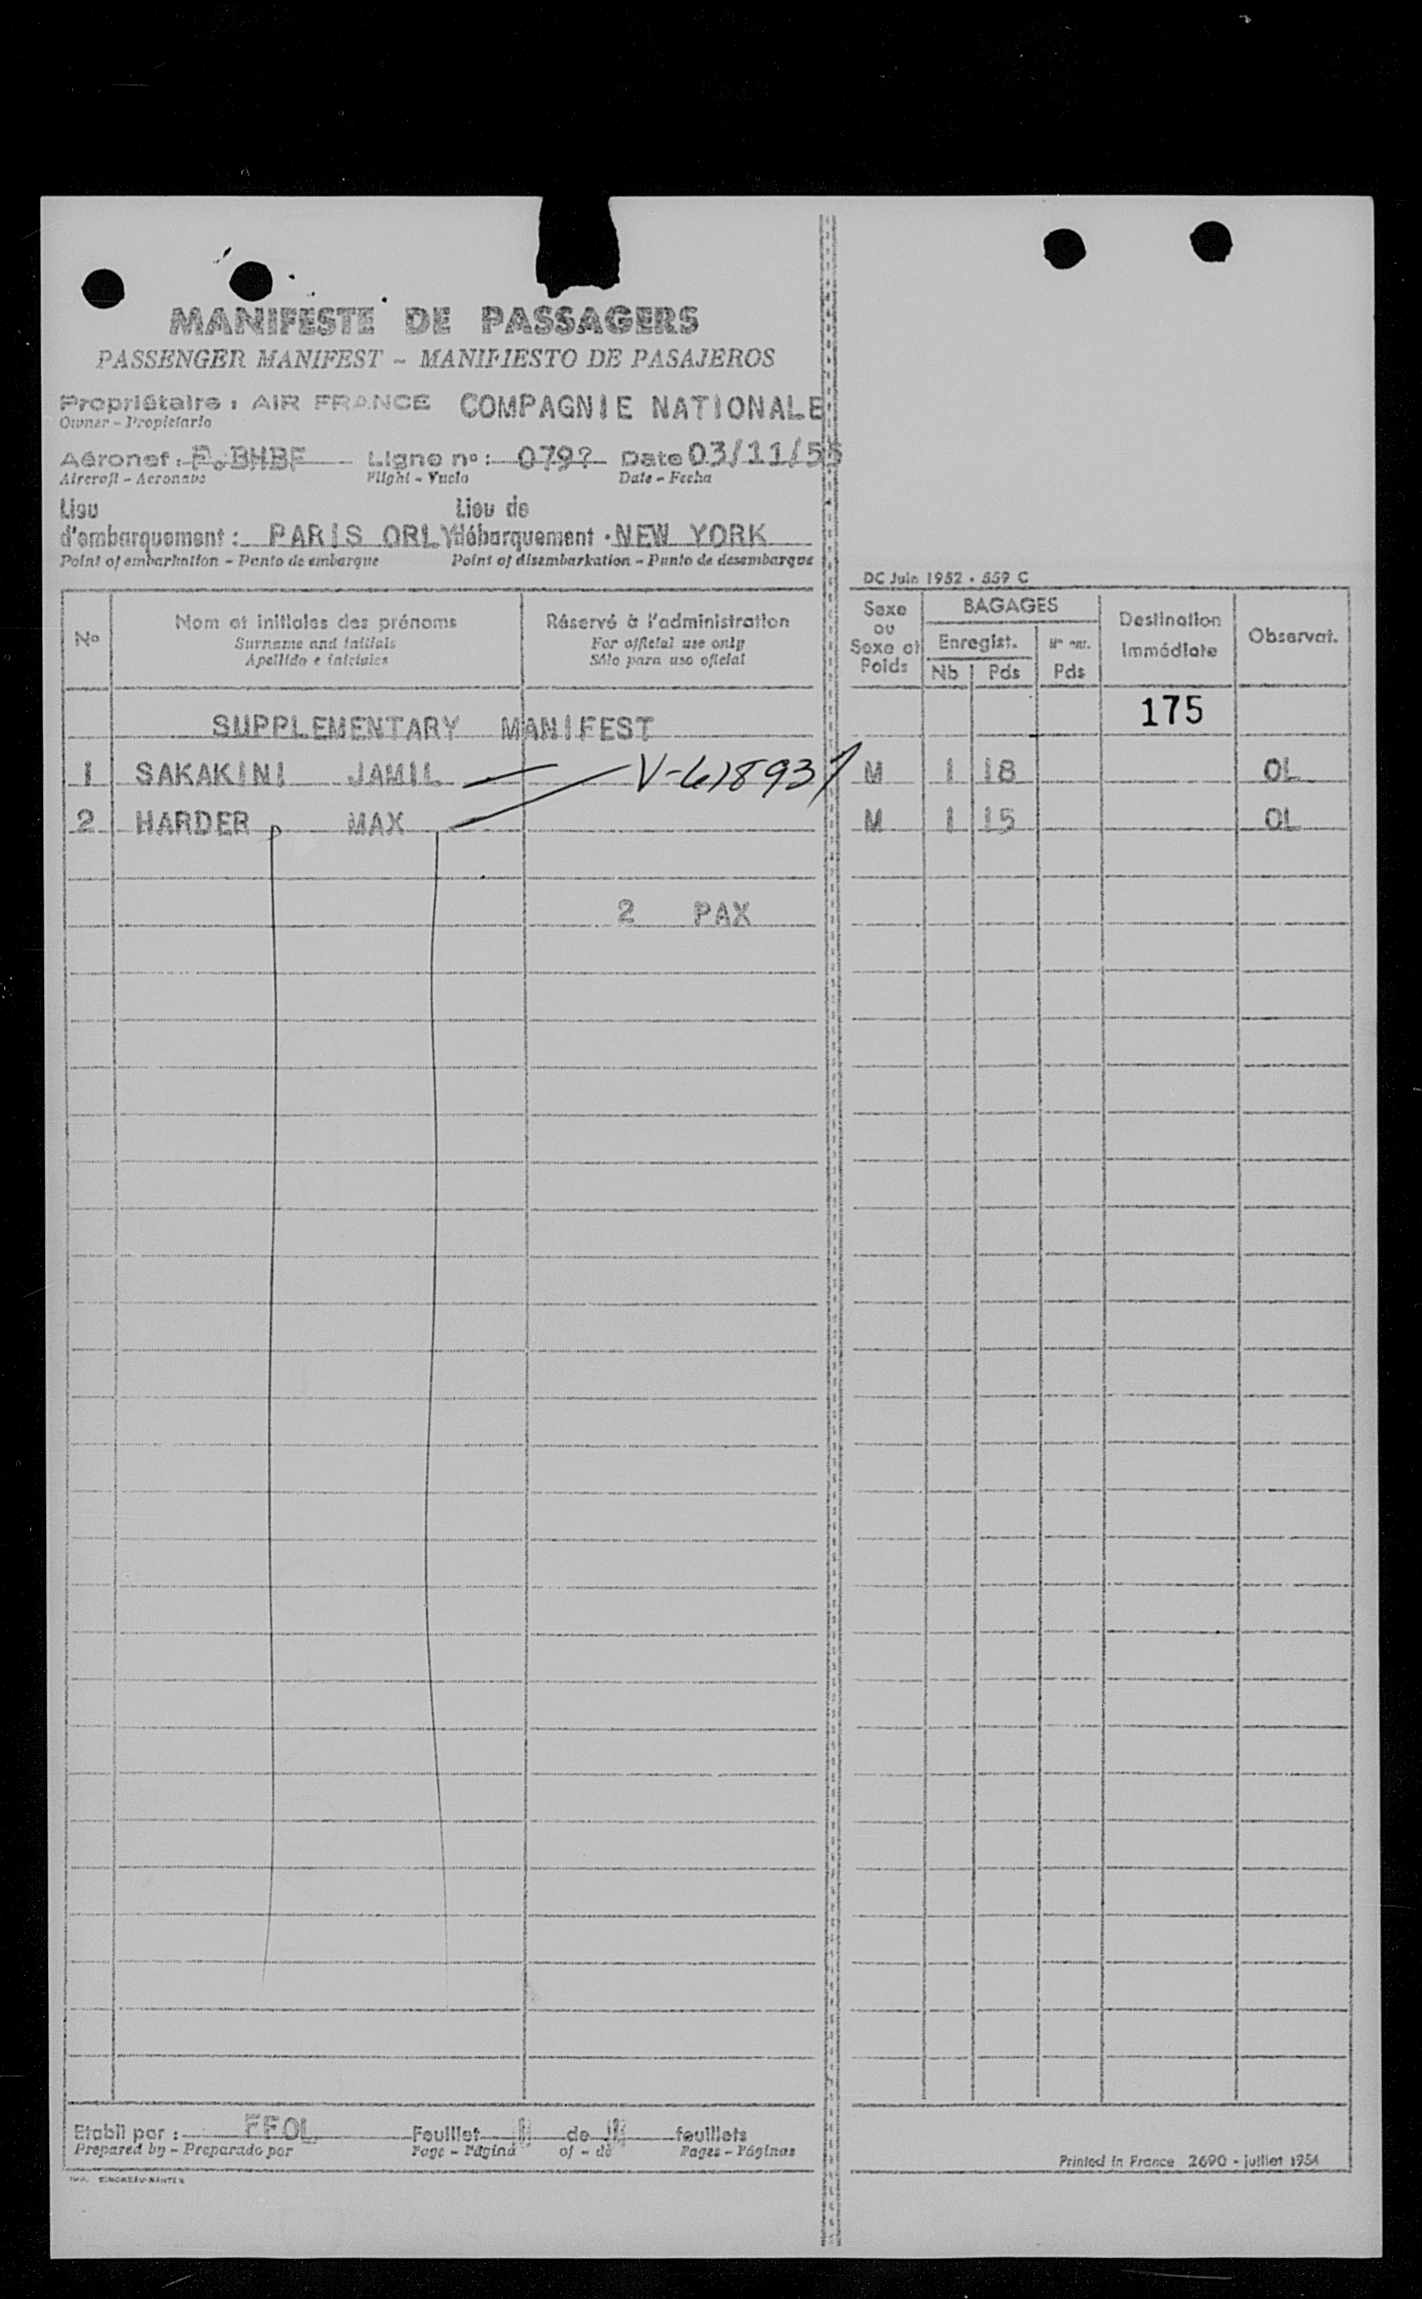 MANIFESTE DE PASSAGERS
PASSENGER MANIFEST - MANIFIESTO DE PASAJEROS
Propriétaire : AIR FRANCE COMPAGNIE NATIONALE
Owner - Propietario
Aéronef : F.BHBF Ligne nº : 079? Date 03/11/55
Aircraft - Aeronave Flight - Vuelo Date - Fecha
Lieu Lieu de
d'embarquement : PARIS ORLY débarquement NEW YORK
Point of embarkation - Punto de embarque Point of disembarkation - Punto de desembarque
DC Juin 1952 - 559 C
Nº Nom et initiales des prénoms Réservé à l'administration Sexe ou Sexe et Poids BAGAGES Destination Immédiate Observat.
Surname and initials For official use only Enregist.
Apellido e iniciales Sólo para uso oficial Nb Pds Pds
SUPPLEMENTARY MANIFEST 175
1 SAKAKINI JAMIL V-618937 M 1 18 OL
2 HARDER MAX M 1 15 OL
2 PAX
Etabli par : FFOL Feuillet de feuillets
Prepared by - Preparado por Page - Página of - de Pages - Páginas
Printed in France 2690 - juillet 1954